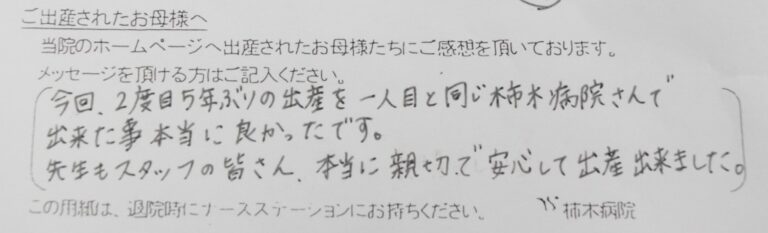 ご出産されたお母様へ
当院のホームページへ出産されたお母様たちにご感想を頂いております。
メッセージを頂ける方はご記入ください。
今回、2度目5年ぶりの出産を一人目と同じ柿木病院さんで
出来た事本当に良かったです。
先生もスタッフの皆さん、本当に親切で安心して出産出来ました。
この用紙は、退院時にナースステーションにお持ちください。 柿木病院